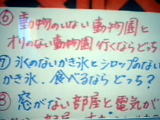 ⑥動物のいない動物園と
オリのない動物園 行くならどっち
⑦氷のないかき氷とシロップのない
かき氷、食べるならどっち?
⑧窓がない部屋と電気が